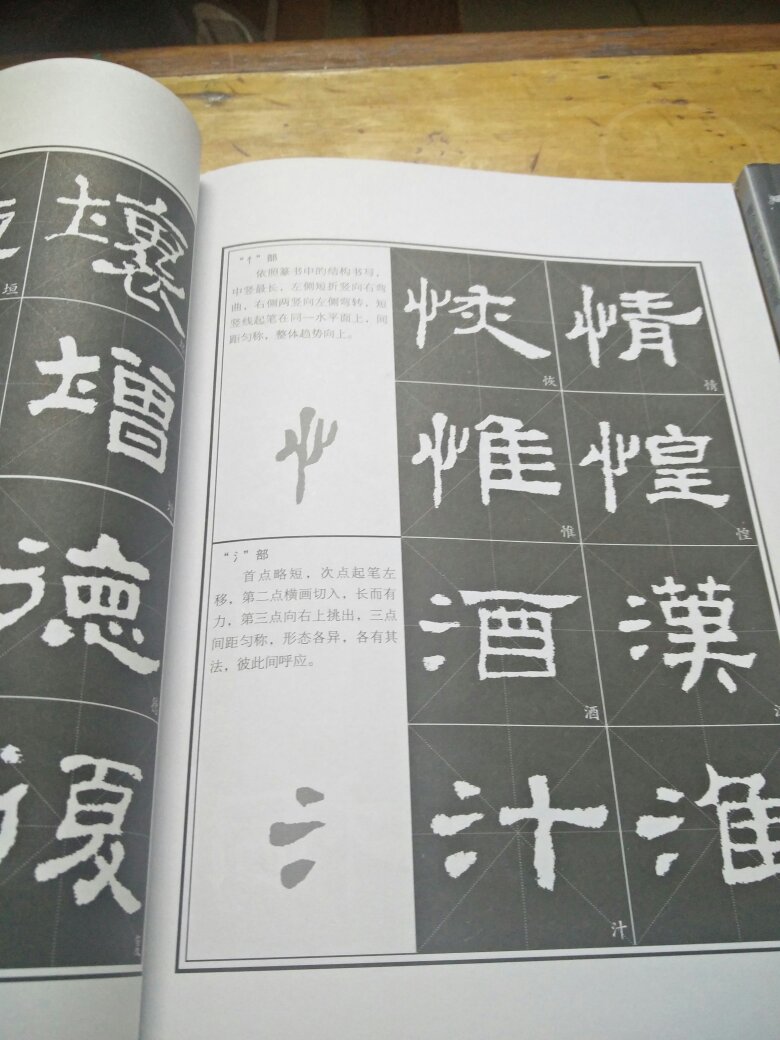 垣
壤
增
德
復
“忄”部
依照篆书中的结构书写，
中竖最长，左侧短折竖向右弯
曲，右侧两竖向左侧弯转，短
竖线起笔在同一水平面上，间
距匀称，整体趋势向上。
忄
恢 情
恢 情
惟 惶
惟 惶
“氵”部
首点略短，次点起笔左
移，第二点横画切入，长而有
力，第三点向右上挑出，三点
间距匀称，形态各异，各有其
法，彼此间呼应。
氵
酒 漢
酒
汁 淮
汁